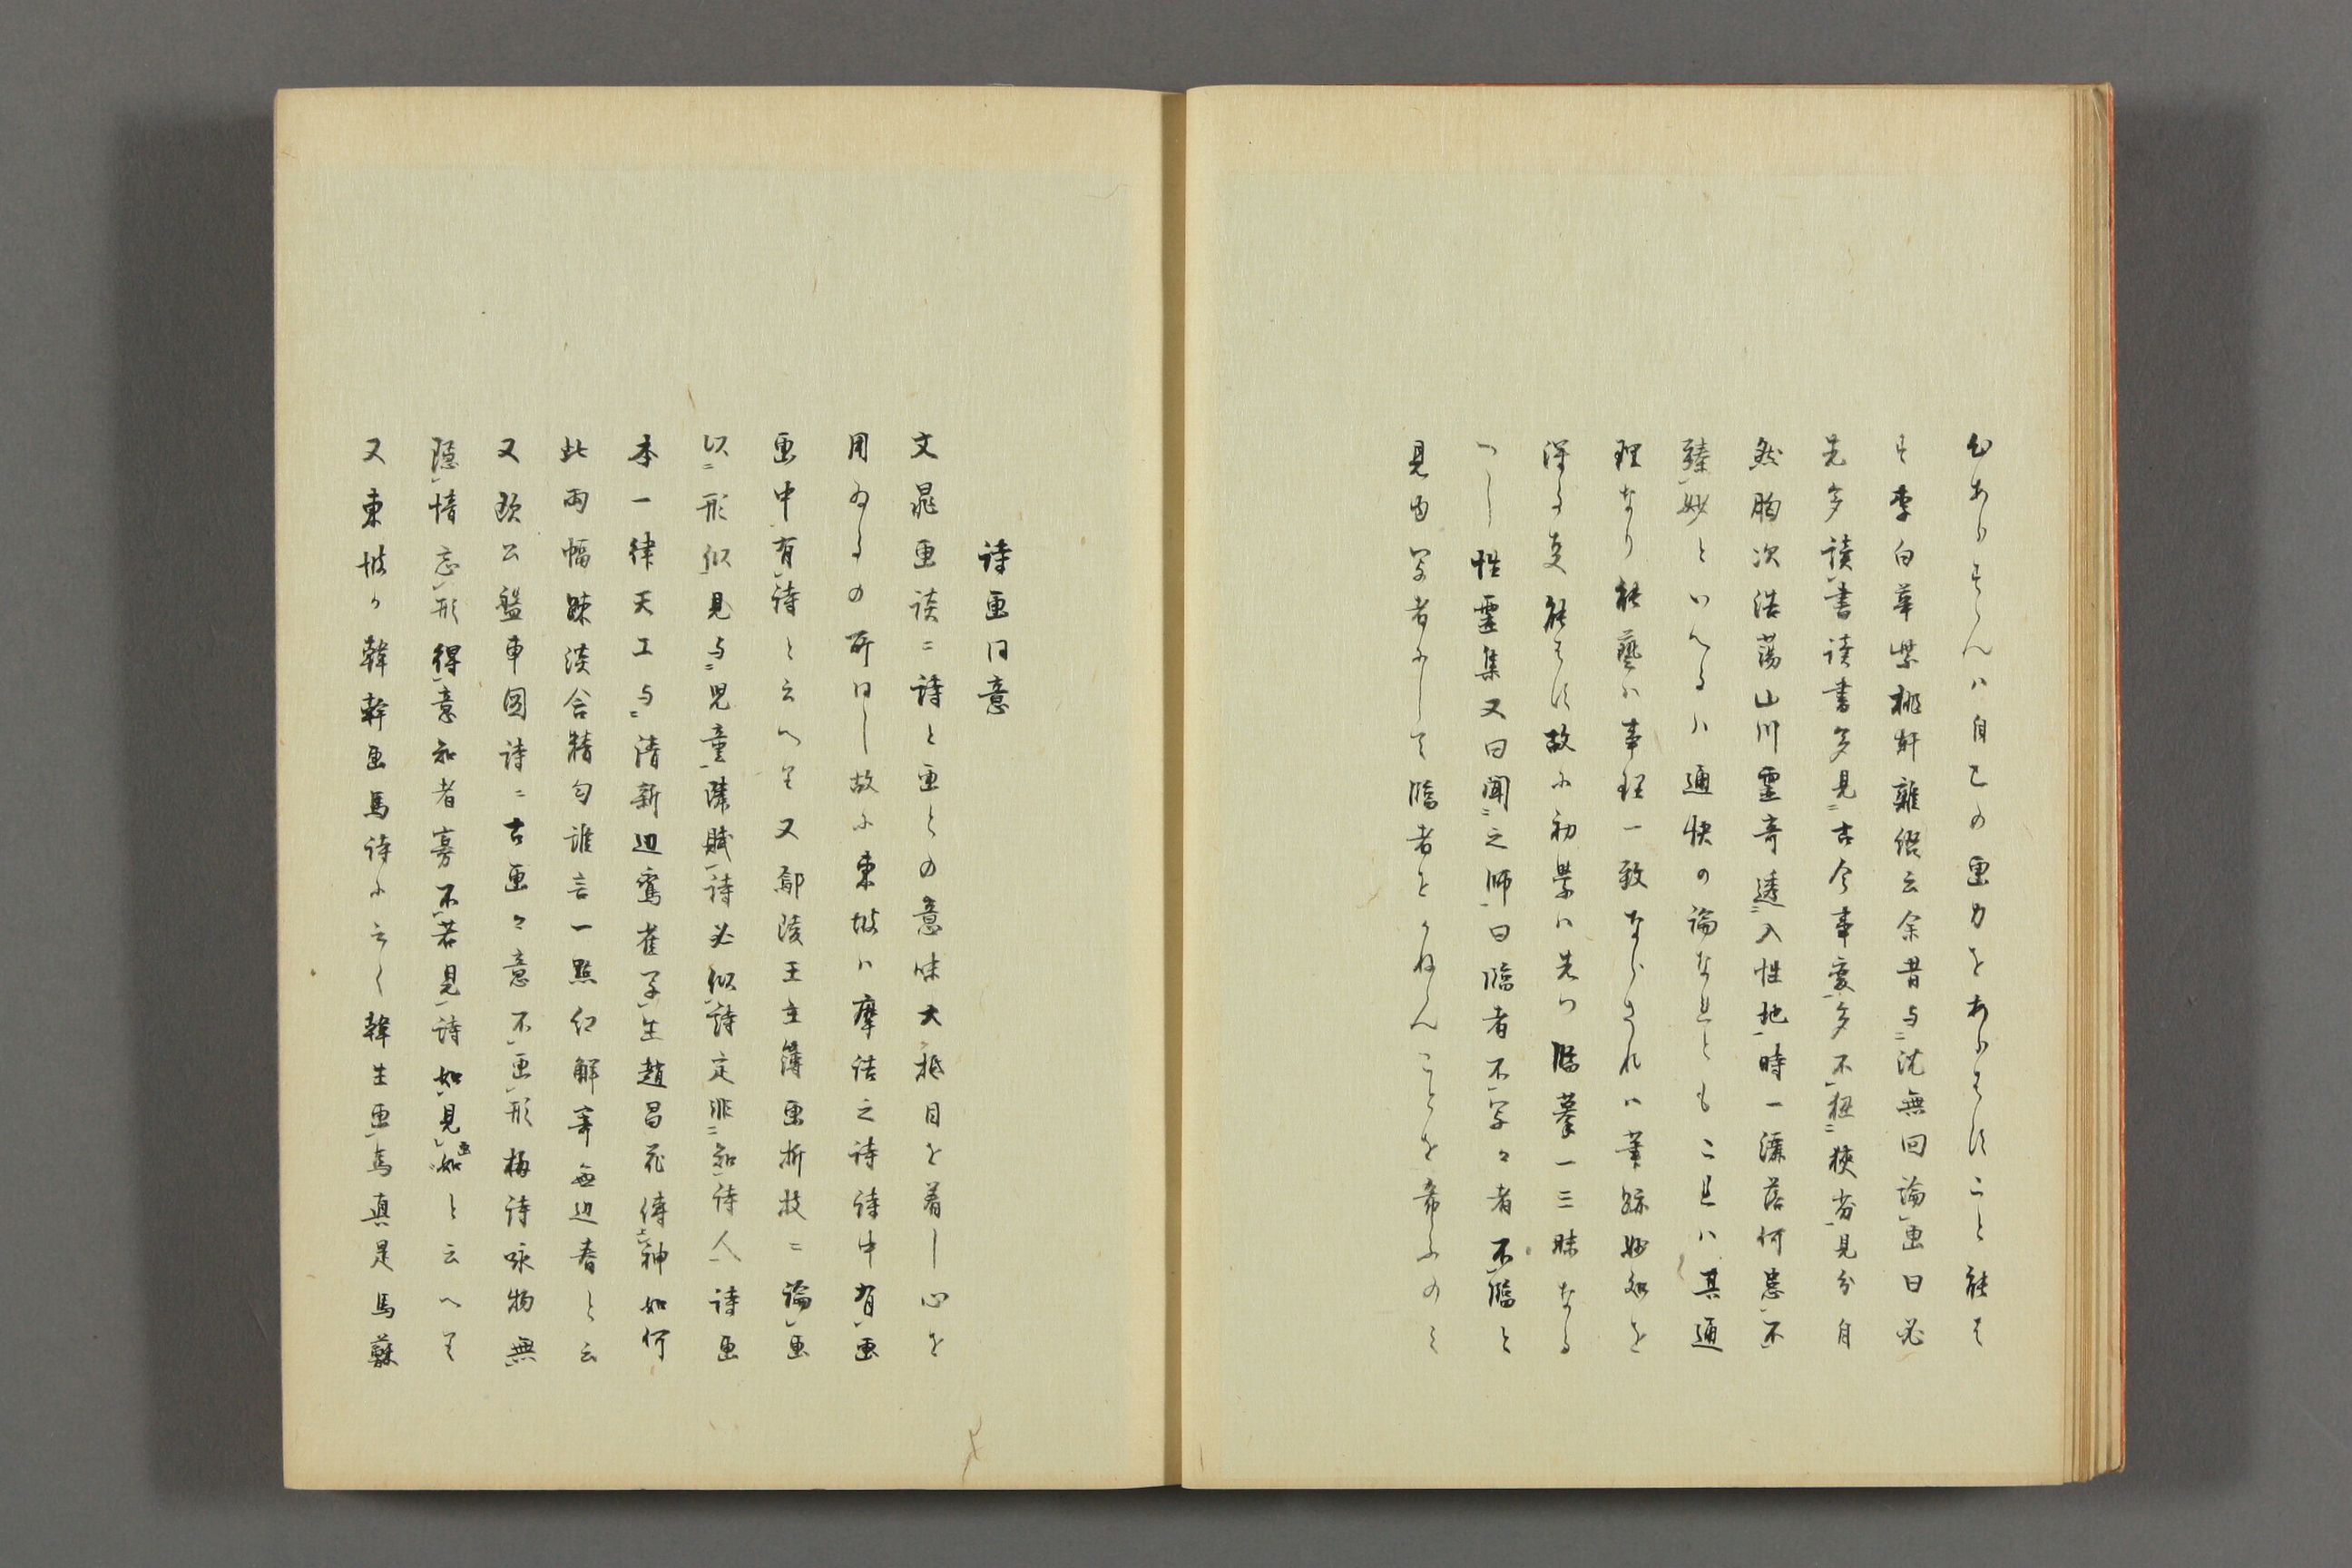 にあらすんハ自己の画力をあらはすこと能は
す李白華紫桃軒雑綴云余昔与沈無回論画曰必
先多読書読書多見古今事変多不狃狭劣見分自
然胸次浩蕩山川霊奇透入性地時一潑落何患不
臻妙といへるハ通快の論なれともこれハ其通
理なり能藝ハ事理一致ならされハ筆跡妙処を
得る事能はす故に初学ハ先つ臨摹一三昧なる
へし性霊集又曰聞之師曰臨者不写々者不臨と
見ゆ写者にして臨者をかねんことを希ふのミ
詩画同意
文晁画談ニ詩と画との意味大抵目を着し心を
用ゆるの所同し故に東坡ハ摩詰之詩詩中有画
画中有詩と云へり又鄢陵王主簿画折枝ニ論画
以形似見与児童隣賦詩必似詩定非知詩人詩画
本一律天工与清新辺鸞雀写生趙昌花傳神如何
此両幅疎淡含精匀誰言一點紅解寄無辺春と云
又欧公盤車図詩ニ古画々意不画形梅詩咏物無
隠情忘形得意知者寡不若見詩如見画と云へり
又東坡か韓幹画馬詩に云く韓生画馬真是馬蘇